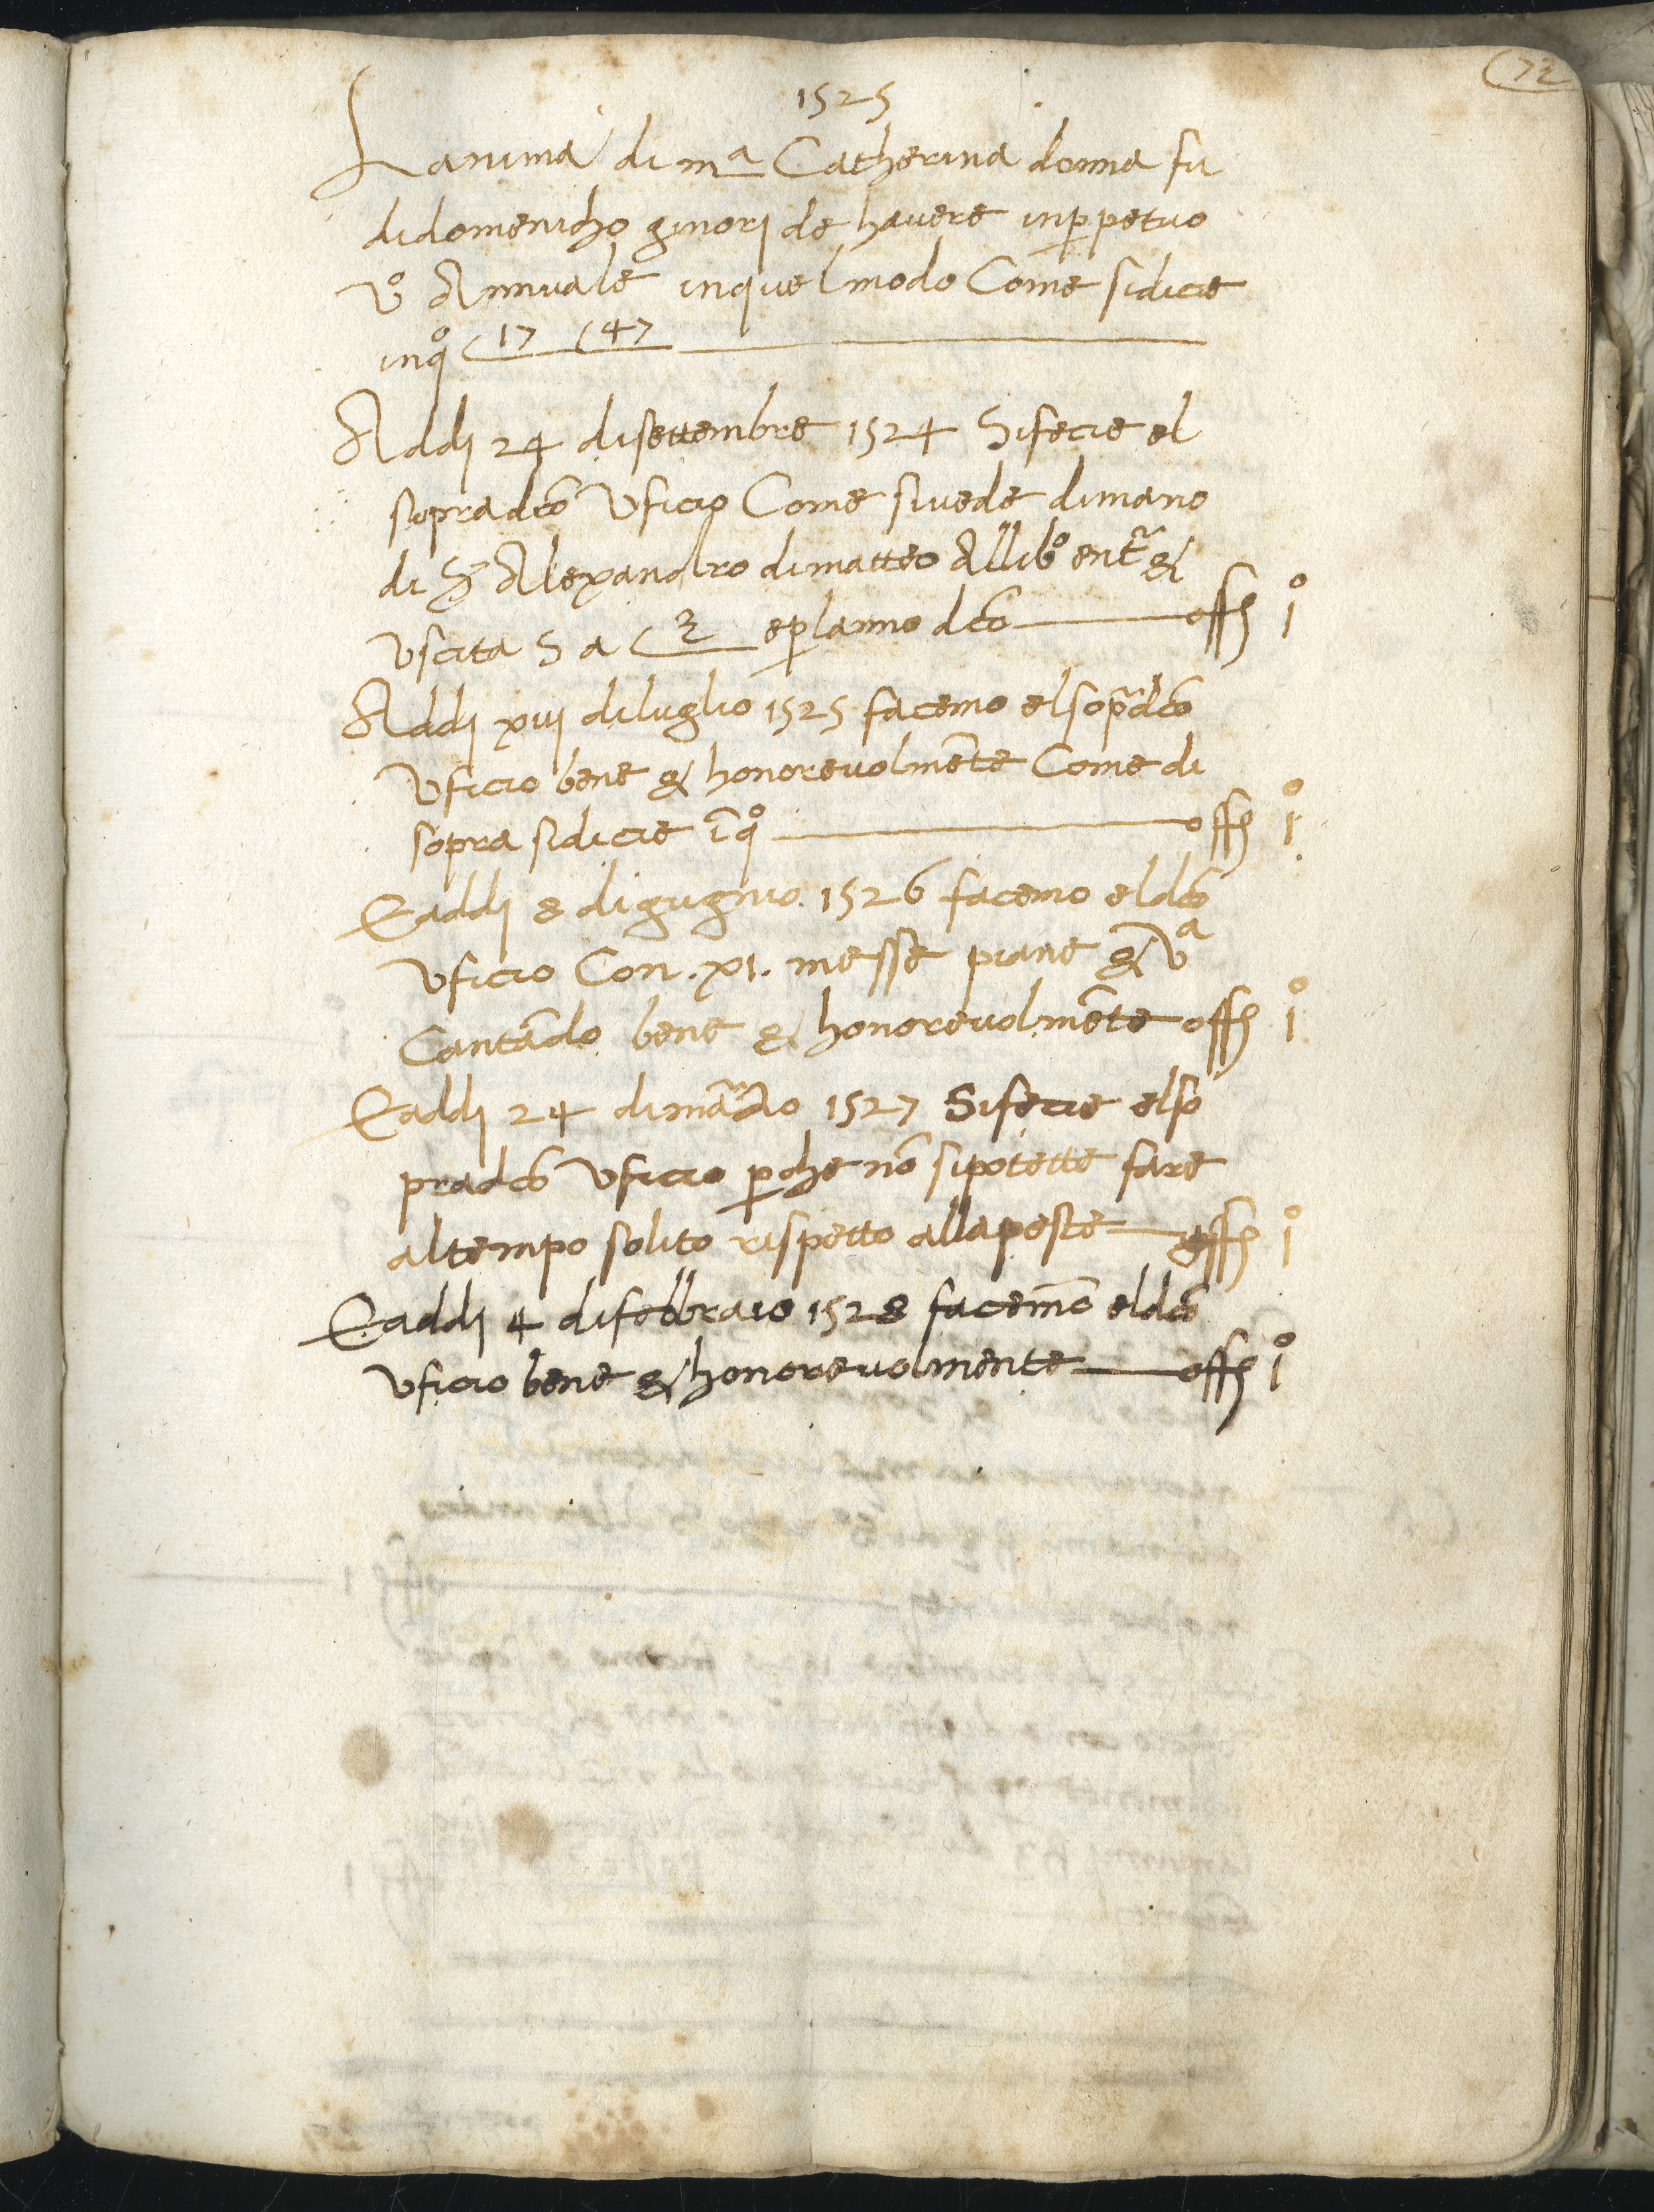 72
1525
Lanima di mª Catherina donna fu
di domenicho ginorj de havere inp̱petuo
vº Annuale inquel modo Come sidicie
inqº (17 (47
Addj 24 disettembre 1524 Sifecie el
sopradc̄o Uficio Come sivede dimano
di Sr̄ Alexandro dimatteo Allibº ent̄ª &
uscita S a (2 ep̱lanno dc̄o offº j
Addj xiij diluglio 1525 facemo elsop̄adc̄o
Uficio bene & honorevolmēte Come di
sopra sidicie īqº offº j
E addj 8 digiugnio 1526 facemo eldc̄o
Uficio Con .xi. messe piane & vª
Cantādo bene & honorevolmēte offº j
E addj 24 dimarzo 1527 Sifecie elso
pradc̄o Uficio p̱che nō sipotette fare
altempo solito rispetto allapeste offº j
E addj 4 difebbraio 1528 facemō eldc̄o
Uficio bene & honorevolmente offº j